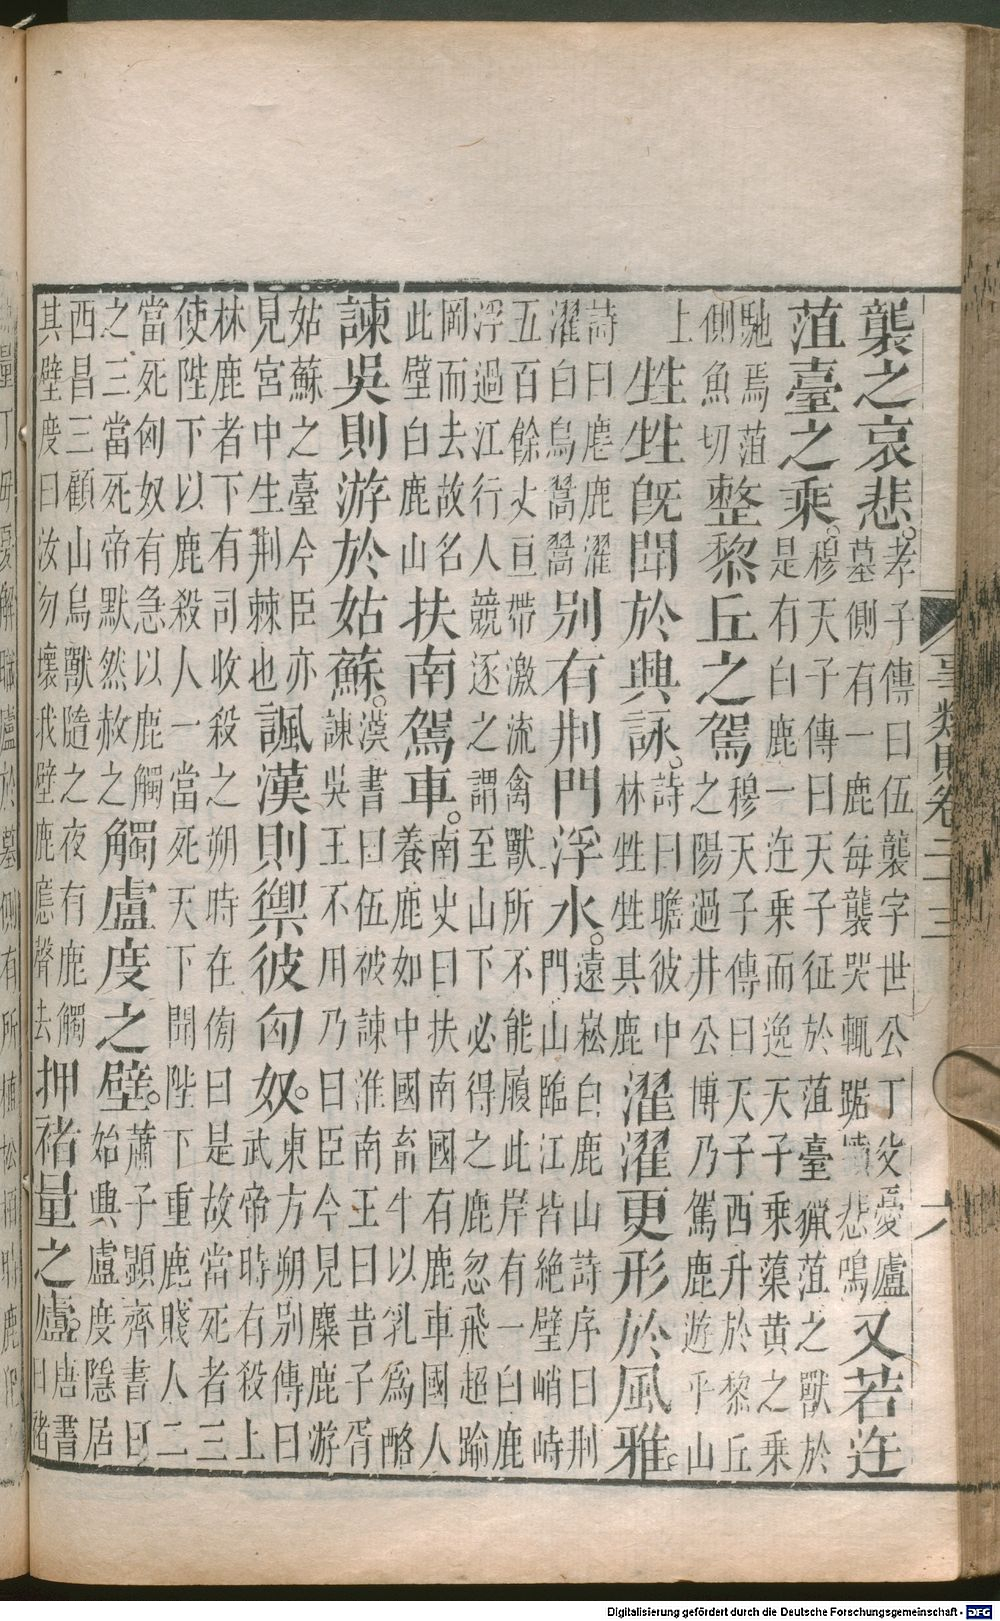 襲之哀悲。
孝子傳曰伍襲字世公丁父憂廬
墓側有一鹿每襲哭輒踞墳悲鳴
又若迕
菹臺之乘。
穆天子傳曰天子征於菹臺獵菹之獸於
是有白鹿一迕乘而逸天子乘蕖黄之乘
馳焉菹
側魚切
整黎丘之駕
穆天子傳曰天子西升於黎丘
之陽過井公博乃駕鹿遊平山
上
甡甡旣聞於興詠。
詩曰瞻彼中
林甡甡其鹿
濯濯更形於風雅。
詩曰麀鹿濯
濯白鳥翯翯
別有荆門浮水。
遠崧白鹿山詩序曰荆
門山臨江皆絶壁峭峙
五百餘丈亘帶激流禽獸所不能履此岸有一白鹿
浮過江行人競逐之謂至山下必得之鹿忽飛超踰
岡而去故名
此壁白鹿山
扶南駕車。
南史曰扶南國有鹿車國人
養鹿如中國畜牛以乳爲酪
諫吳則游於姑蘇。
漢書曰伍被諫淮南王曰昔子胥
諫吳王不用乃曰臣今見麋鹿游
姑蘇之臺今臣亦
見宮中生荆棘也
諷漢則禦彼匈奴。
東方朔別傳曰
武帝時有殺上
林鹿者下有司收殺之朔時在傍曰是故當死者三
使陛下以鹿殺人一當死天下聞陛下重鹿賤人二
當死匈奴有急以鹿觸
之三當死帝默然赦之
觸盧度之壁。
蕭子顯齊書曰
始興盧度隱居
西昌三顧山鳥獸隨之夜有鹿觸
其壁度曰汝勿壞我壁鹿應聲去
押褚量之廬。
唐書
曰褚
事類賦卷二十三
六
Digitalisierung gefördert durch die Deutsche Forschungsgemeinschaft - DFG